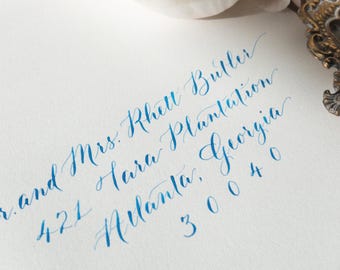 r. and Mrs. Rhett Butler
421 Tara Plantation
Atlanta, Georgia
30040